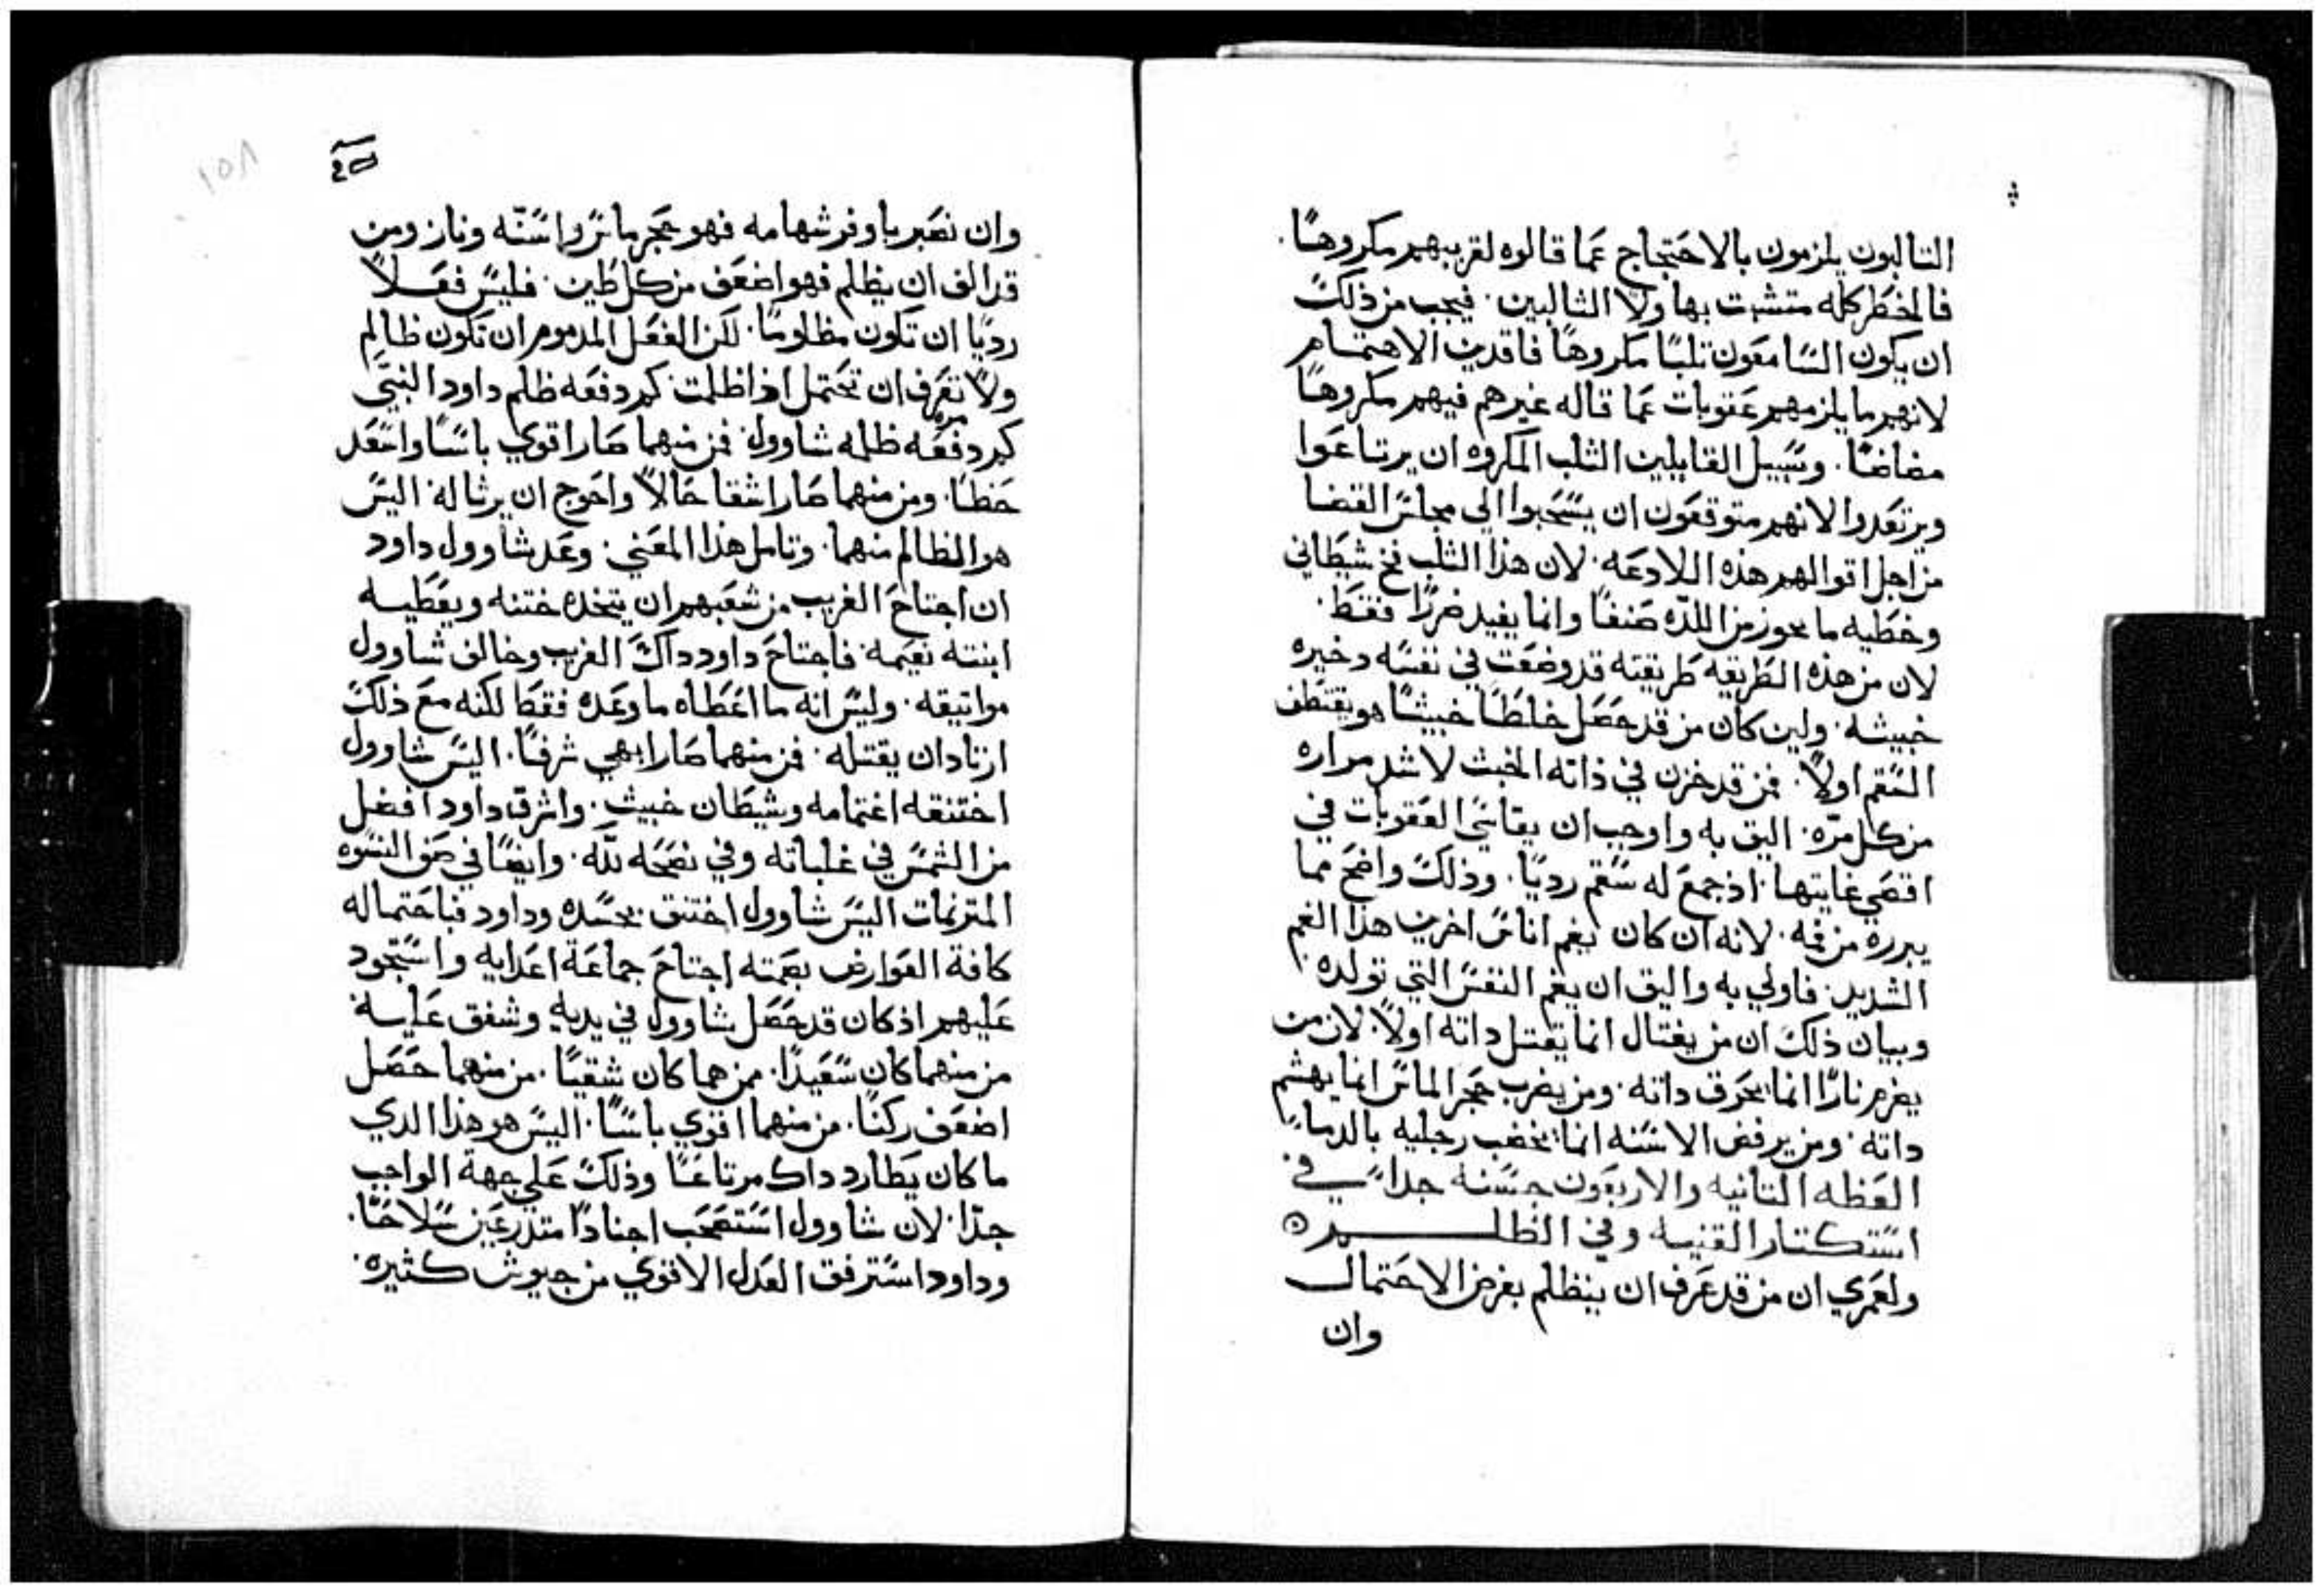 التالبون يلزمون بالاحتجاج عما قالوه لقريبهم مكروهًا.
فالخطر كله متشبت بها ولا الثالبين. فيجب من ذلك
ان يكون السامعون تلبًا مكروهًا فاقدين الاهتمام
لانهم ما يلزمهم عقوبات عما قاله غيرهم فيهم مكروهًا
مضاضًا. وسبيل القايلين الثلب المكروه ان يرتاعوا
ويرتعدوا لانهم متوقعون ان يسحبوا الي مجلس القضا
من اجل اقوالهم هذه اللادعه. لان هذا الثلب فخ شيطاني
وخطيه ما يحوز من اللذه صنفًا وانما يفيد ضررًا فقط.
لان من هذه الطريقه طريقته قد وضعت في نفسه دخيره
خبيثه. ولين كان من قد حصل خلطًا خبيثًا هو يقتطف
السقم اولًا. فمن قد خزن في ذاته الخبث لاشد مراره
من كل مرّه. اليق به واوجب ان يقاسي العقوبات في
اقصي غايتها. اذ جمع له سقم رديًا. وذلك واضح مما
يبرزه من فمه. لانه ان كان يغم اناسً اخرين هذا الغم
الشديد. فاولي به واليق ان يغم النفس التي تولده.
وبيان ذلك ان من يغتال انما يقتل داته اولًا. لان من
يضرم نارًا انما يحرق داته. ومن يضرب حجر الماس انما يهشم
داته. ومن يرفض الاسنه انما يخضب رجليه بالدما.
العظه التانيه والاربعون حسنه جدا في
استكتار القنيه وفي الظلم
ولعمري ان من قد عرف ان ينظلم بغرض الاحتمال
وان
وان نصبر باوفر شهامه فهو حجر ماس واسنّه ونار ومن
قد الف ان يظلم فهو اضعف من كل طين. فليس فعلًا
رديًا ان تكون مظلومًا. لكن الفعل المدموم ان تكون ظالم
ولا تعرف ان تحتمل اذا ظلمت. كم دفعه ظلم داود النبيّ
كم دفعه مره ظلمه شاوول. فمن منهما صار اقوي باسًا واسعد
حظًا. ومن منهما صار اشقا حالًا واحوج ان يرثا له. اليس
هو الظالم منهما. وتامل هذا المعني. وعد شاوول داود
ان اجتاح الغريب من شعبهم ان يتخده ختنه ويعطيه
ابنته نعيمه. فاجتاح داود داك الغريب وخالف شاوول
مواتيقه. وليس انه ما اعطاه ما وعده فقط لكنه مع ذلك
ارتاد ان يقتله. فمن منهما صار ابهي شرفًا. اليس شاوول
اختنقه اغتمامه وشيطان خبيث. واشرق داود افضل
من الشمس في غلباته وفي نصحه لله. وايضًا في صف النسوه
المترنمات اليس شاوول اختنق بحسده وداود فباحتماله
كافة العوارض بصمته اجتاح جماعة اعدايه واستجود
عليهم اذ كان قد حصل شاوول في يديه وشفق عليه.
من منهما كان سعيدًا. من هما كان شقيًا. من منهما حصل
اضعف ركنًا. من منهما اقوي باسًا. اليس هو هذا الدي
ما كان يطارد داك مرتاعًا وذلك علي جهة الواجب
جدًا. لان شاوول استصحب اجنادًا متدرعين سلاحًا.
وداود استرفق العدل الاقوي من جيوش كثيره.